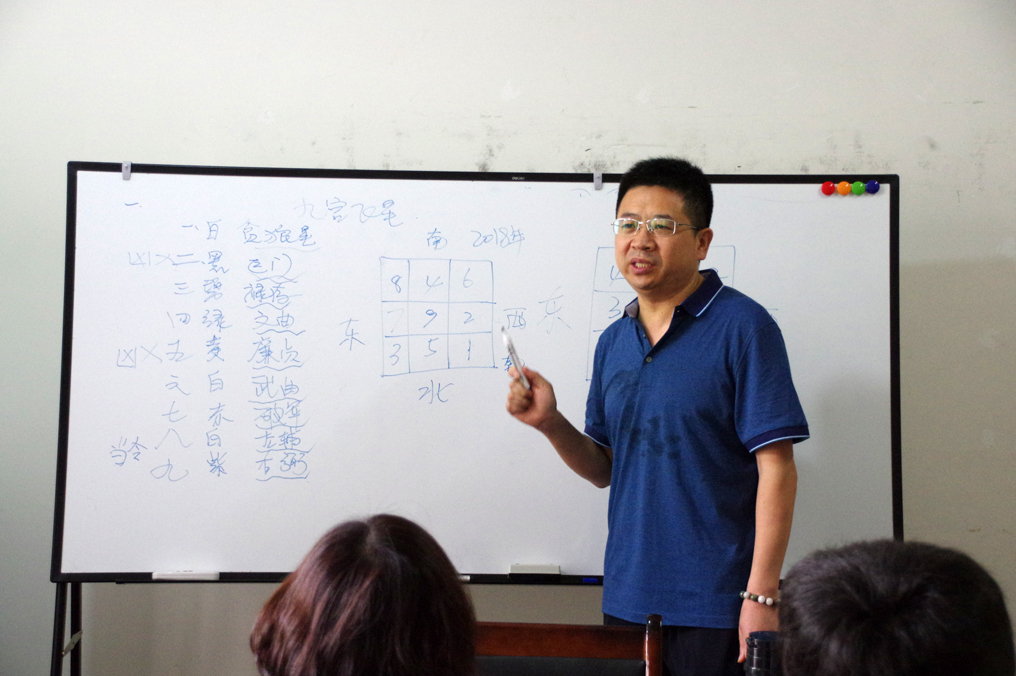 一
九宫飞星
一白 贪狼星
凶 × 二黑 巨门
三碧 禄存
四绿 文曲
凶 × 五黄 廉贞
六白 武曲
七赤 破军
当令 八白 左辅
九紫 右弼
南 2018年
8 4 6
7 9 2
3 5 1
东
西
4
3